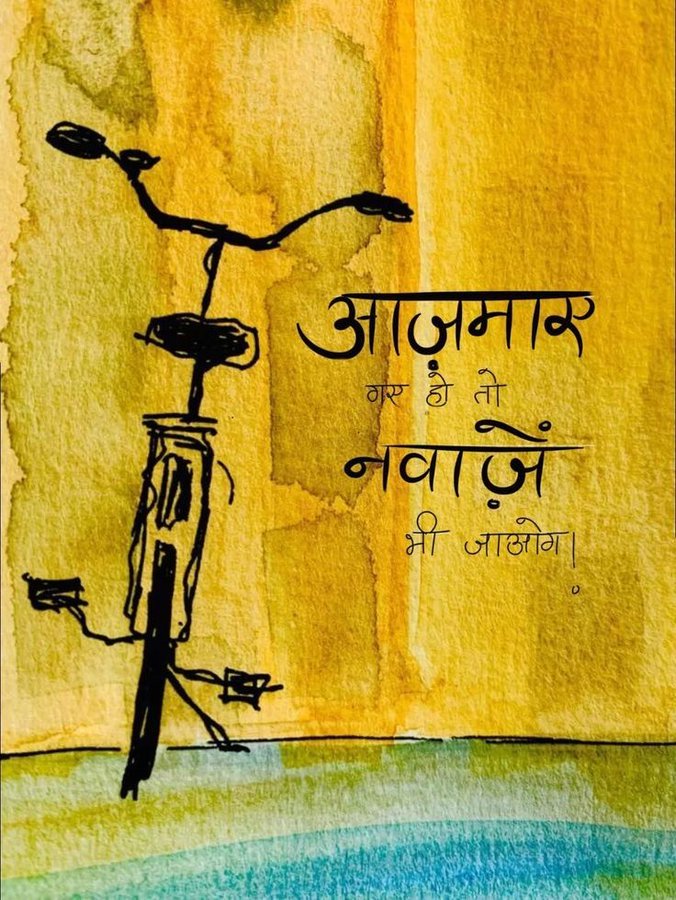 आज़माए
गए हो तो
नवाज़ें
भी जाओग!